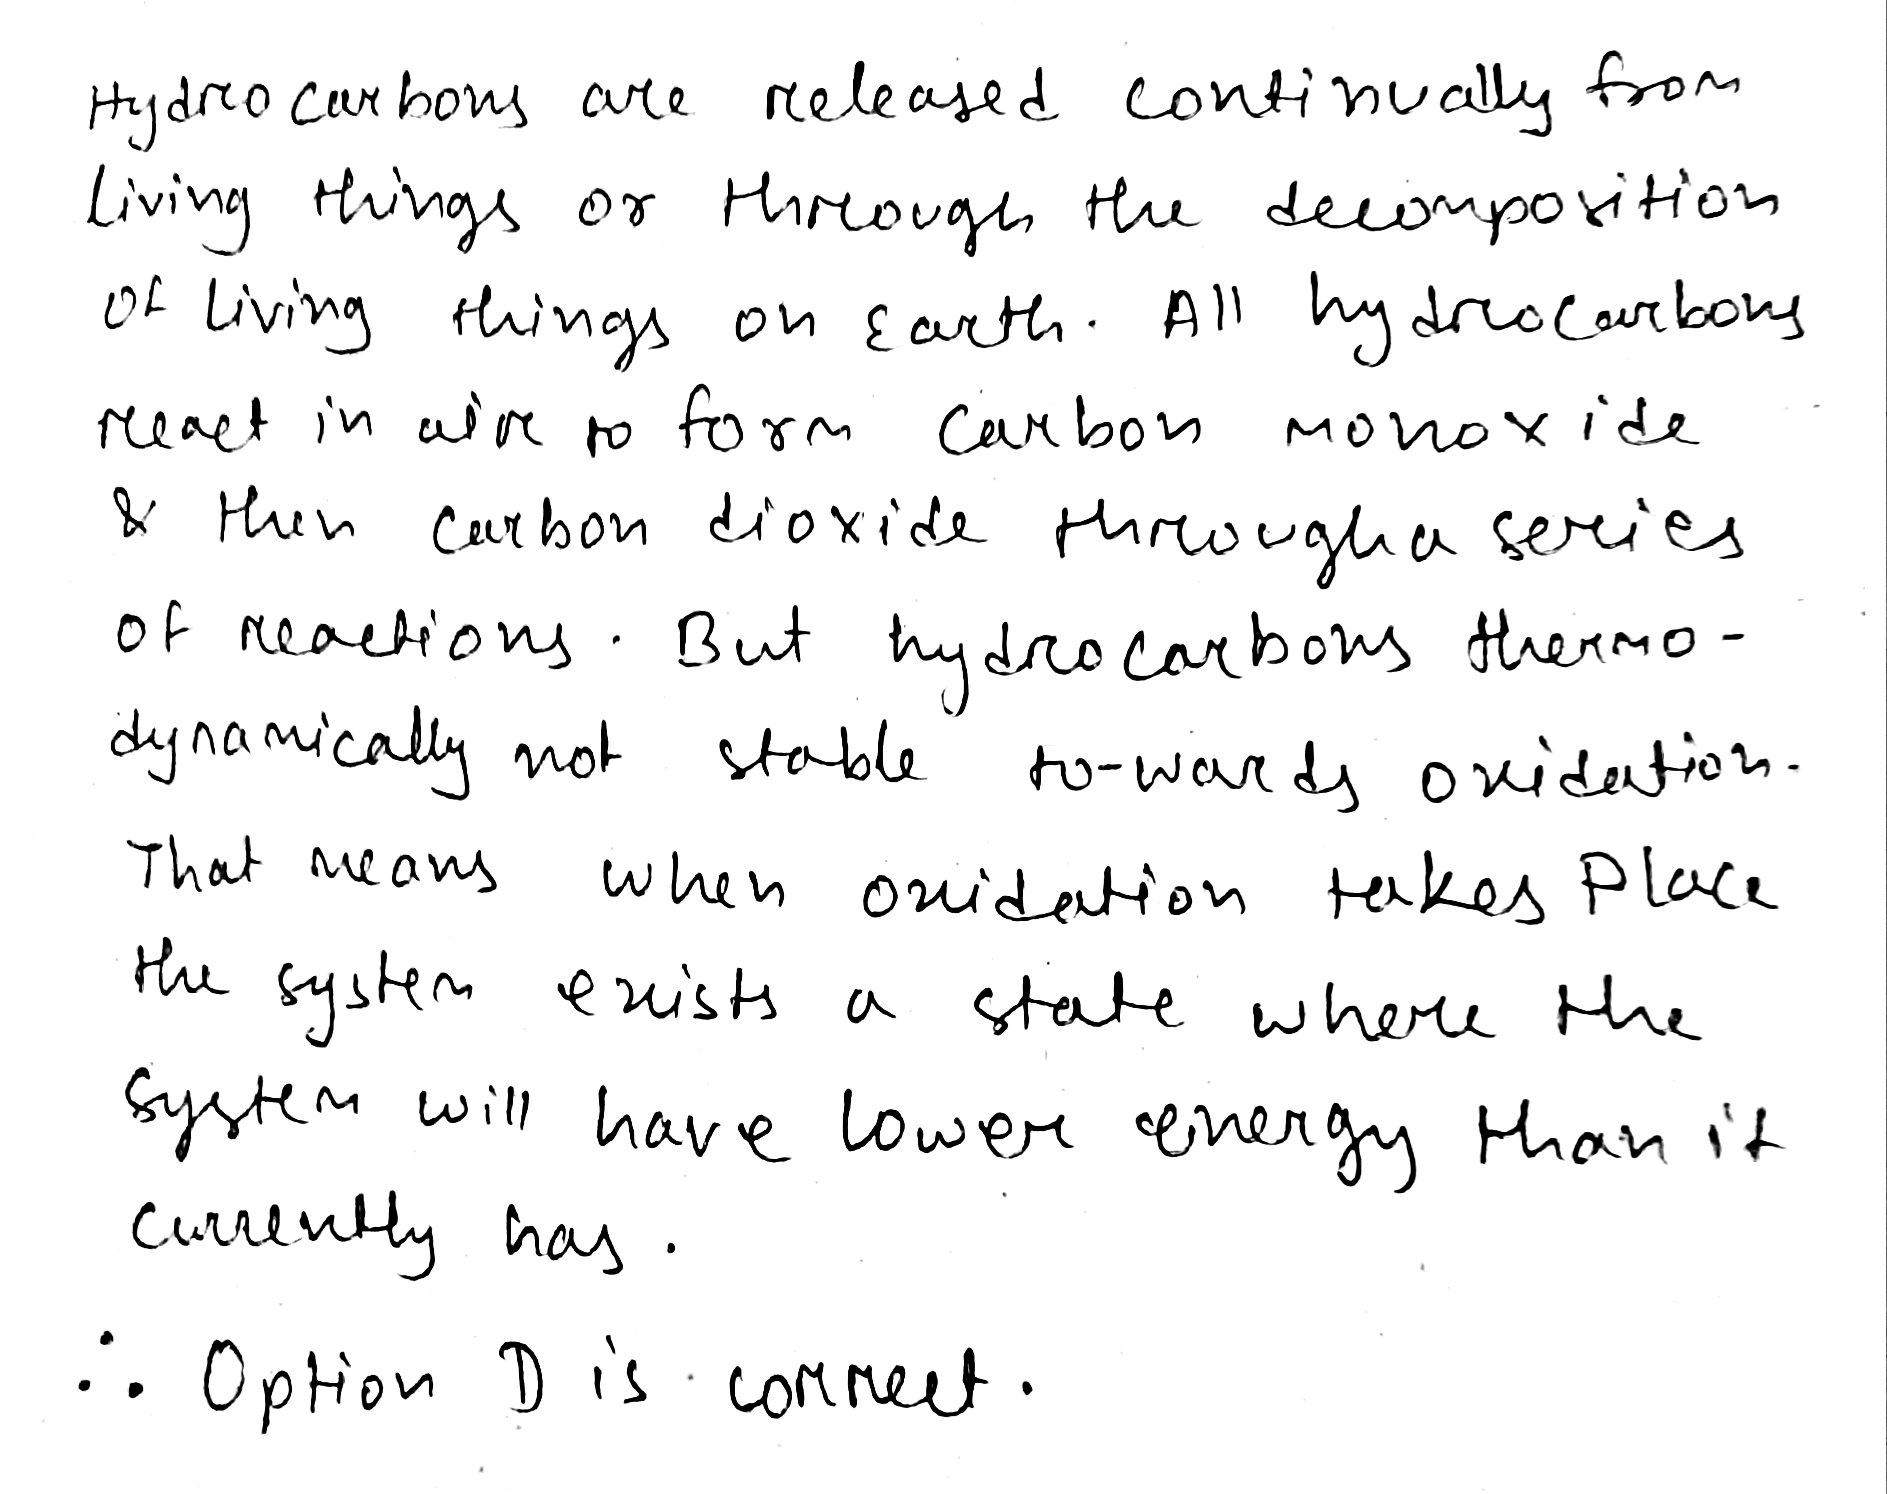 Hydrocarbons are released continually from
living things or through the decomposition
of living things on Earth. All hydrocarbons
react in air to form carbon monoxide
& then carbon dioxide through a series
of reactions. But hydrocarbons thermo-
dynamically not stable to-wards oxidation.
That means when oxidation takes place
the system exists a state where the
system will have lower energy than it
currently has.
∴ Option D is correct.